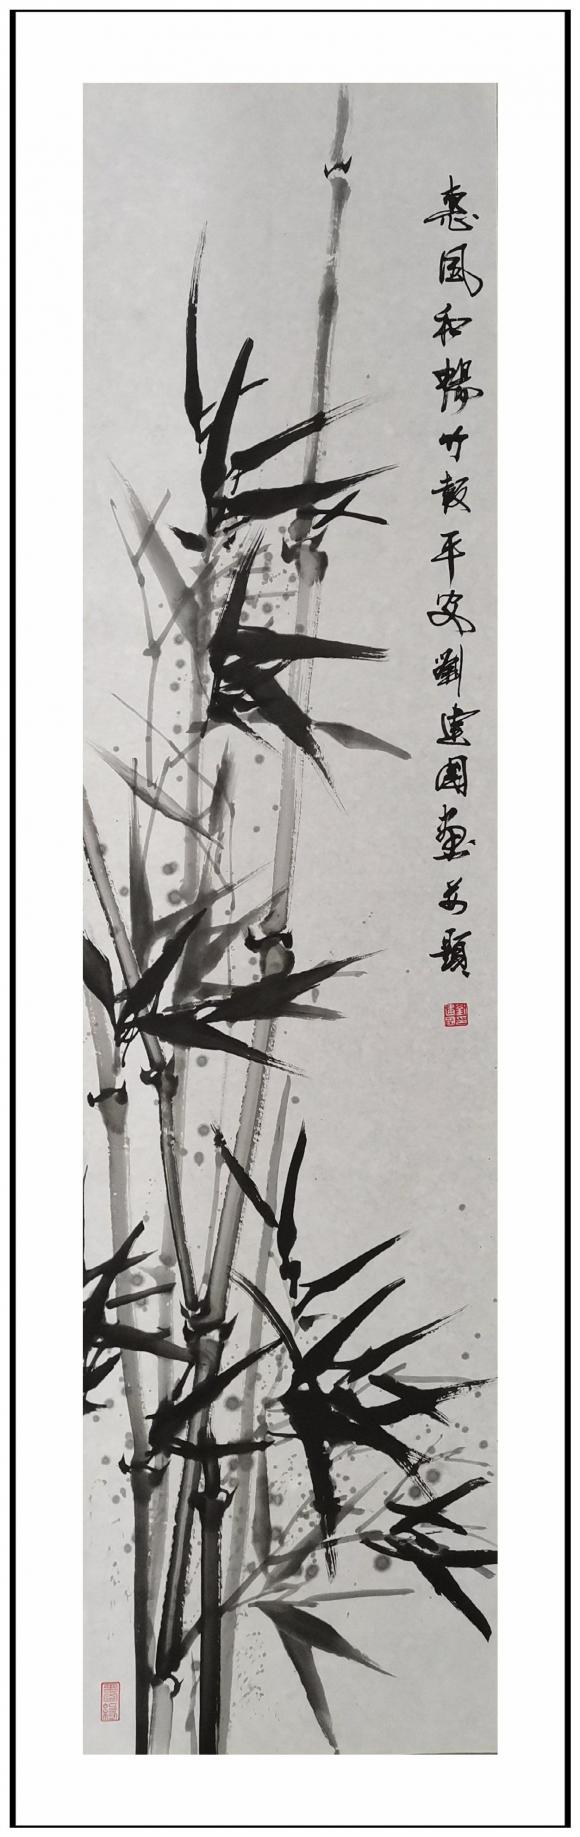 惠風和暢竹報平安劉建國畫并題